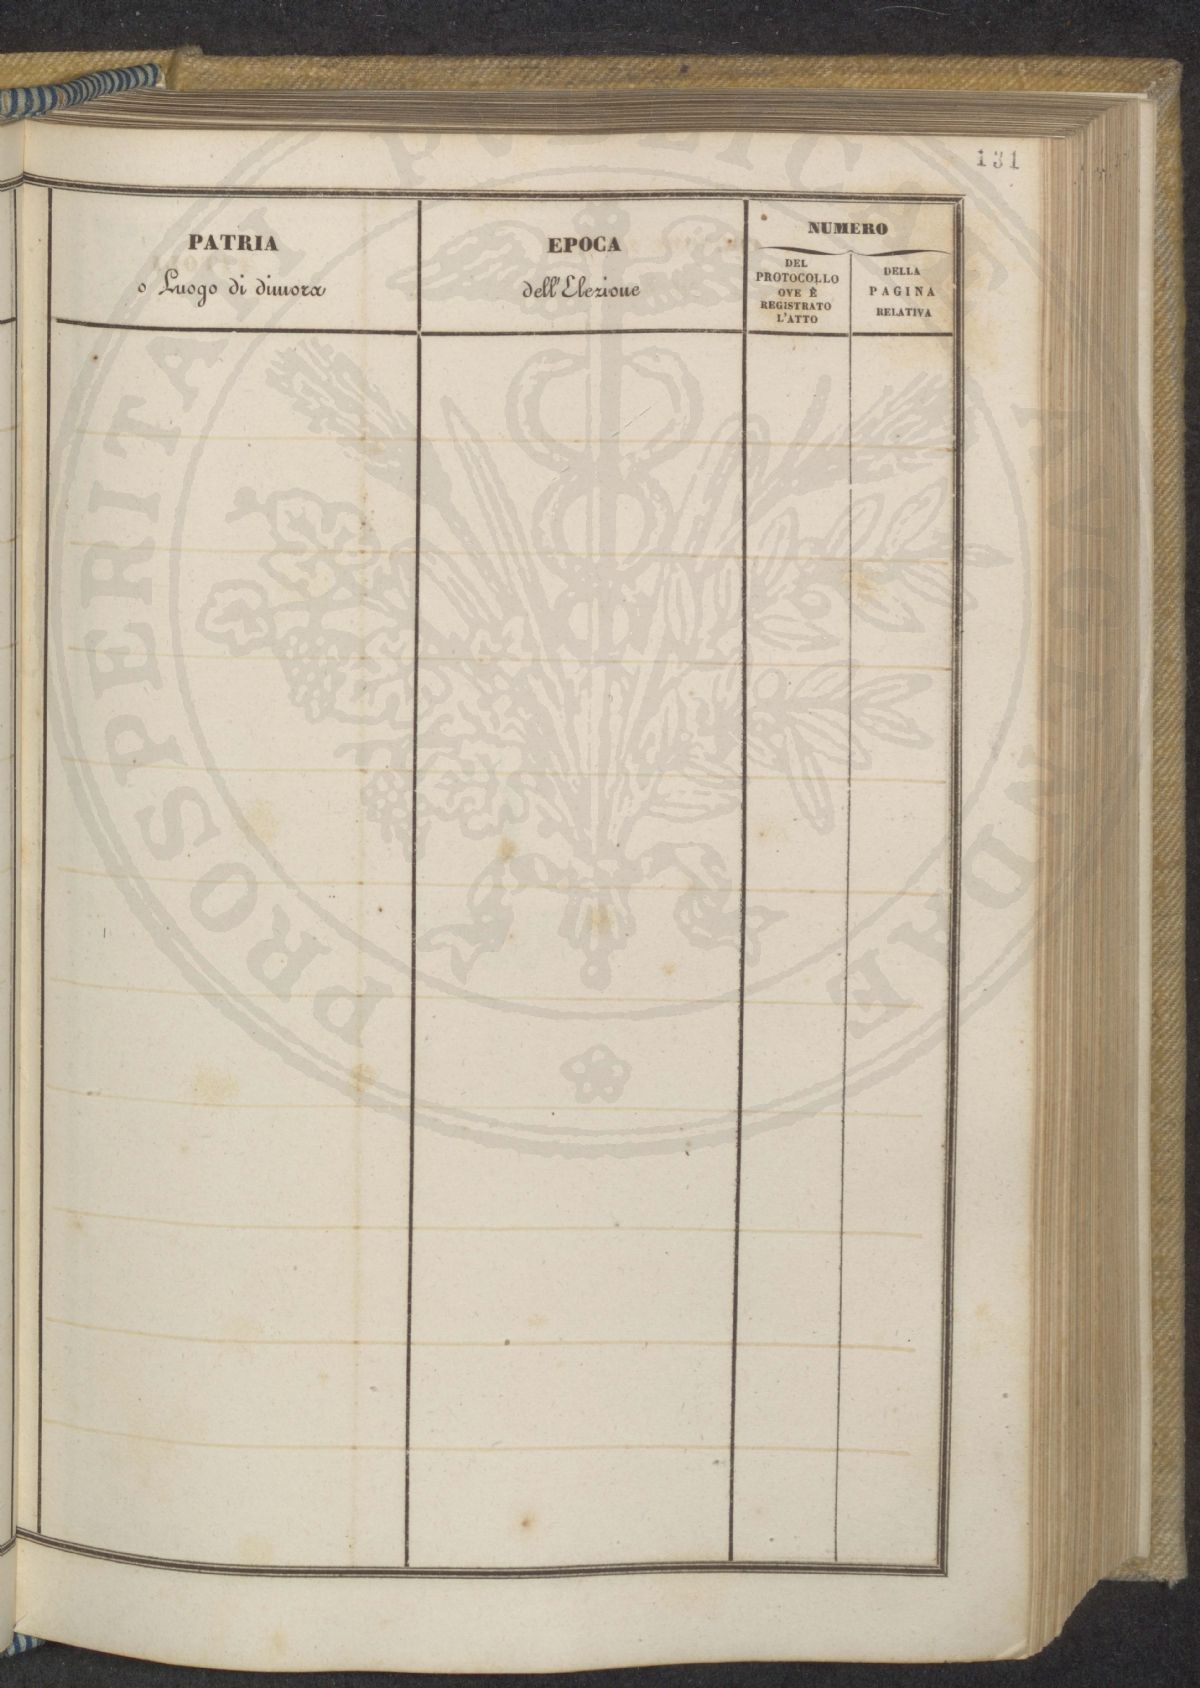 131
PATRIA
o Luogo di dimora
EPOCA
dell'Elezione
NUMERO
DEL
PROTOCOLLO
OVE È
REGISTRATO
L'ATTO
DELLA
PAGINA
RELATIVA
PROSPERITATI PUBLICAE AUGENDAE